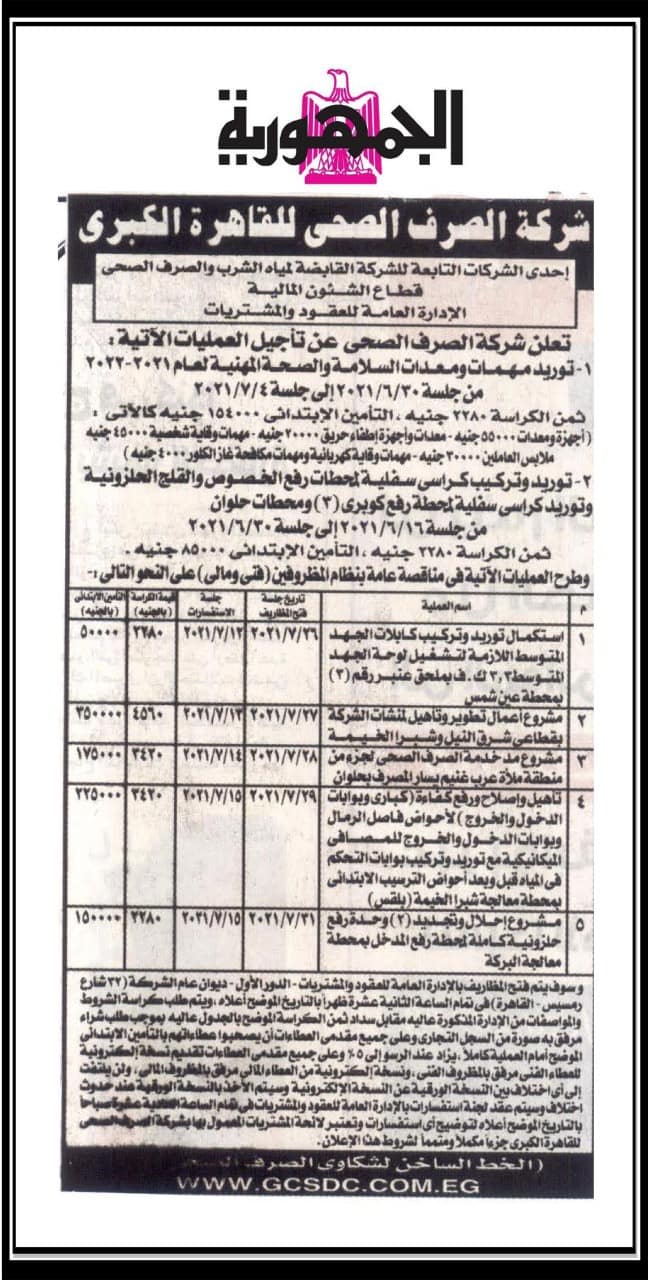 الجمهورية
شركة الصرف الصحى للقاهرة الكبرى
إحدى الشركات التابعة للشركة القابضة لمياه الشرب والصرف الصحى
قطاع الشئون المالية
الإدارة العامة للعقود والمشتريات
تعلن شركة الصرف الصحى عن تأجيل العمليات الآتية :
١- توريد مهمات ومعدات السلامة والصحة المهنية لعام ٢٠٢١-٢٠٢٢
من جلسة ٢٠٢١/٦/٣٠ إلى جلسة ٢٠٢١/٧/٤
ثمن الكراسة ٢٢٨٠ جنيه ، التأمين الإبتدائى ١٥٤٠٠٠ جنيه كالآتى :
( أجهزة ومعدات ٥٥٠٠٠ جنيه - معدات وأجهزة إطفاء حريق ٢٠٠٠٠ جنيه - مهمات وقاية شخصية ٤٥٠٠٠ جنيه
ملابس العاملين ٣٠٠٠٠ جنيه - مهمات وقاية كهربائية ومهمات مكافحة غاز الكلور ٤٠٠٠ جنيه )
٢- توريد وتركيب كراسى سفلية لمحطات رفع الخصوص والقلج الحلزونية
وتوريد كراسى سفلية لمحطة رفع كوبرى (٣) ومحطات حلوان
من جلسة ٢٠٢١/٦/١٦ إلى جلسة ٢٠٢١/٦/٣٠
ثمن الكراسة ٢٢٨٠ جنيه ، التأمين الإبتدائى ٨٥٠٠٠ جنيه .
وطرح العمليات الآتية فى مناقصة عامة بنظام المظروفين (فنى ومالى) على النحو التالى :-
م اسم العملية تاريخ جلسة فتح المظاريف جلسة الاستفسارات قيمة الكراسة (بالجنيه) التأمين الابتدائى (بالجنيه)
١ استكمال توريد وتركيب كابلات الجهد ٢٠٢١/٧/٢٦ ٢٠٢١/٧/١٢ ٢٢٨٠ ٥٠٠٠٠
المتوسط اللازمة لتشغيل لوحة الجهد
المتوسط ٣,٣ ك.ف بملحق عنبر رقم (٢)
بمحطة عين شمس
٢ مشروع أعمال تطوير وتاهيل لمنشات الشركة ٢٠٢١/٧/٢٧ ٢٠٢١/٧/١٣ ٤٥٦٠ ٣٥٠٠٠٠
بقطاعى شرق النيل وشبرا الخيمة
٣ مشروع مد خدمة الصرف الصحى لجزء من ٢٠٢١/٧/٢٨ ٢٠٢١/٧/١٤ ٣٤٢٠ ١٧٥٠٠٠
منطقة ملأة عرب غنيم يسار المصرف بحلوان
٤ تاهيل وإصلاح ورفع كفاءة (كبارى وبوابات ٢٠٢١/٧/٢٩ ٢٠٢١/٧/١٥ ٣٤٢٠ ٢٢٥٠٠٠
الدخول والخروج) لأحواض فاصل الرمال
وبوابات الدخول والخروج للمصافى
الميكانيكية مع توريد وتركيب بوابات التحكم
فى المياه قبل وبعد أحواض الترسيب الابتدائى
بمحطة معالجة شبرا الخيمة (بلقس)
٥ مشروع إحلال وتجديد (٢) وحدة رفع ٢٠٢١/٧/٣١ ٢٠٢١/٧/١٥ ٢٢٨٠ ١٥٠٠٠٠
حلزونية كاملة لمحطة رفع المدخل بمحطة
معالجة البركة
وسوف يتم فتح المظاريف بالإدارة العامة للعقود والمشتريات - الدور الأول - ديوان عام الشركة (٣٢ شارع
رمسيس - القاهرة) فى تمام الساعة الثانية عشرة ظهراً بالتاريخ الموضح أعلاه ، ويتم طلب كراسة الشروط
والمواصفات من الإدارة المذكورة عاليه مقابل سداد ثمن الكراسة الموضح بالجدول عاليه بموجب طلب شراء
مرفق به صورة من السجل التجارى وعلى جميع مقدمى العطاءات أن يصحبوا عطاءاتهم بالتأمين الابتدائى
الموضح أمام العملية كاملاً ، يزاد عند الرسو إلى ٥٪ وعلى جميع مقدمى العطاءات تقديم نسخة إلكترونية
للعطاء الفنى مرفق بالمظروف الفنى ، ونسخة إلكترونية من العطاء المالى مرفق بالمظروف المالى ، ولن يلتفت
إلى أى اختلاف بين النسخة الورقية عن النسخة الإلكترونية وسيتم الأخذ بالنسخة الورقية عند حدوث
اختلاف وسيتم عقد لجنة استفسارات بالإدارة العامة للعقود والمشتريات فى تمام الساعة الحادية عشرة صباحاً
بالتاريخ الموضح أعلاه لتوضيح أى استفسارات وتعتبر لائحة المشتريات المعمول بها بشركة الصرف الصحى
للقاهرة الكبرى جزءاً مكملاً ومتمماً لشروط هذا الإعلان.
( الخط الساخن لشكاوى الصرف الصحى
WWW.GCSDC.COM.EG